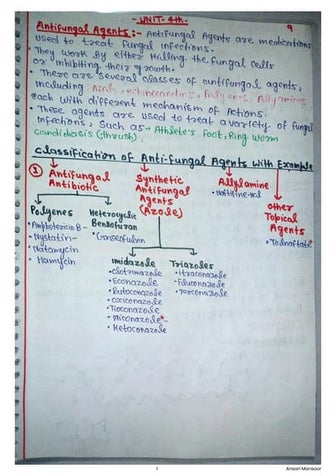 UNIT- 4th-
9
Antifungal Agents:- Antifungal Agents are medications
used to treat fungal infections.
• They work by either killing the fungal cells
or inhibiting their growth.
• There are several classes of antifungal agents,
including Azole, echinocandins, Polyenes, Allylamines
each with different mechanism of Actions.
• These agents are used to treat a variety of fungal
infections, such as- Athlete's foot, Ring worm
candidiasis (thrush).
Classification of Anti-fungal Agents with Example
① Antifungal Antibiotic
Polyenes
• Amphotericin B-
• Nystatin-
• Natamycin
• Hamycin
Heterocyclic
Benzofuran
Synthetic
Antifungal
Agents
(Azole)
Imidazole
• Clotrimazole
• Econazole
• Butoconazole
• Oxiconazole
• Tioconazole
• Miconazole*
• Ketoconazole
Triazoles
• Itraconazole
• Fluconazole
Allylamine
Other
Topical
Agents
• Tolnaftate
1
Ansari Mansoor